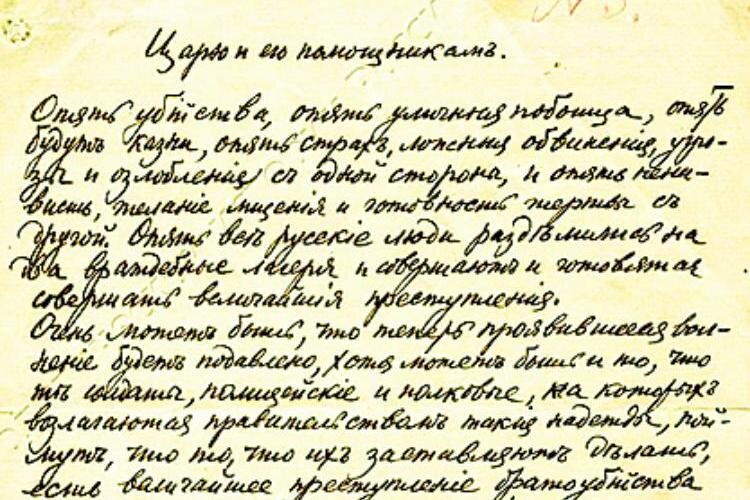 Царю и его помощникамъ.
Опять убійства, опять уличныя побоища, опять
будутъ казни, опять страхъ, ложныя обвиненія, угро-
зы и озлобленіе съ одной стороны, и опять нена-
висть, желаніе мщенія и готовность жертвы съ
другой. Опять всѣ русскіе люди раздѣлились на
два враждебные лагеря и совершаютъ и готовятся
совершать величайшія преступленія.
Очень можетъ быть, что теперь проявившееся вол-
неніе будетъ подавлено, хотя можетъ быть и то, что
тѣ солдаты, полицейскіе и полковые, на которыхъ
возлагаются правительствомъ такія надежды, пой-
мутъ, что то, что ихъ заставляютъ дѣлать,
есть величайшее преступленіе братоубійства